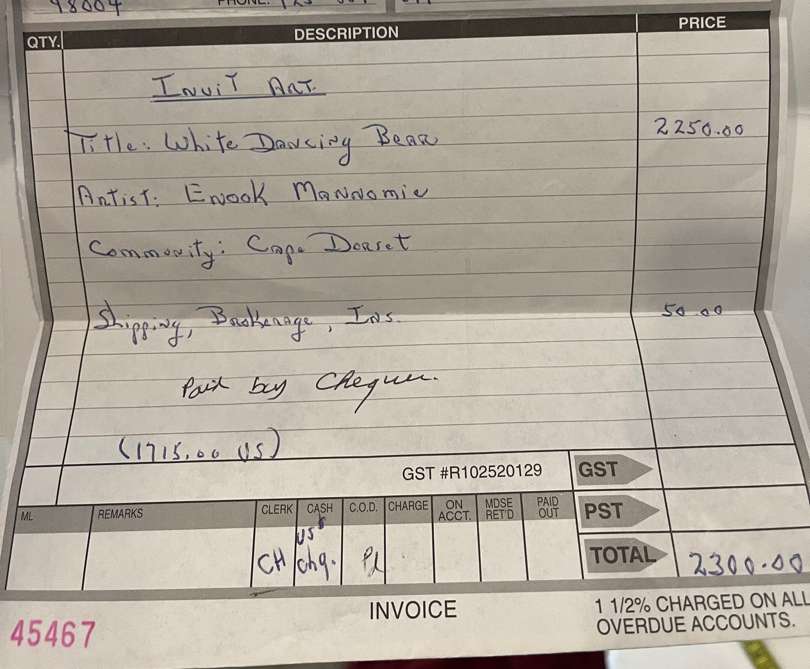 98004
PHONE:
QTY. DESCRIPTION PRICE
INUIT ART.
Title: White Dancing Bear 2250.00
Artist: Enook Mannomie
Community: Cape Dorset
Shipping, Brokerage, Ins. 50.00
Paid by Cheque.
(1715.00 US)
GST #R102520129 GST
ML REMARKS CLERK CASH C.O.D. CHARGE ON ACCT. MDSE RET'D PAID OUT PST
CH US$ chq. Pd TOTAL 2300.00
INVOICE 1 1/2% CHARGED ON ALL
45467 OVERDUE ACCOUNTS.